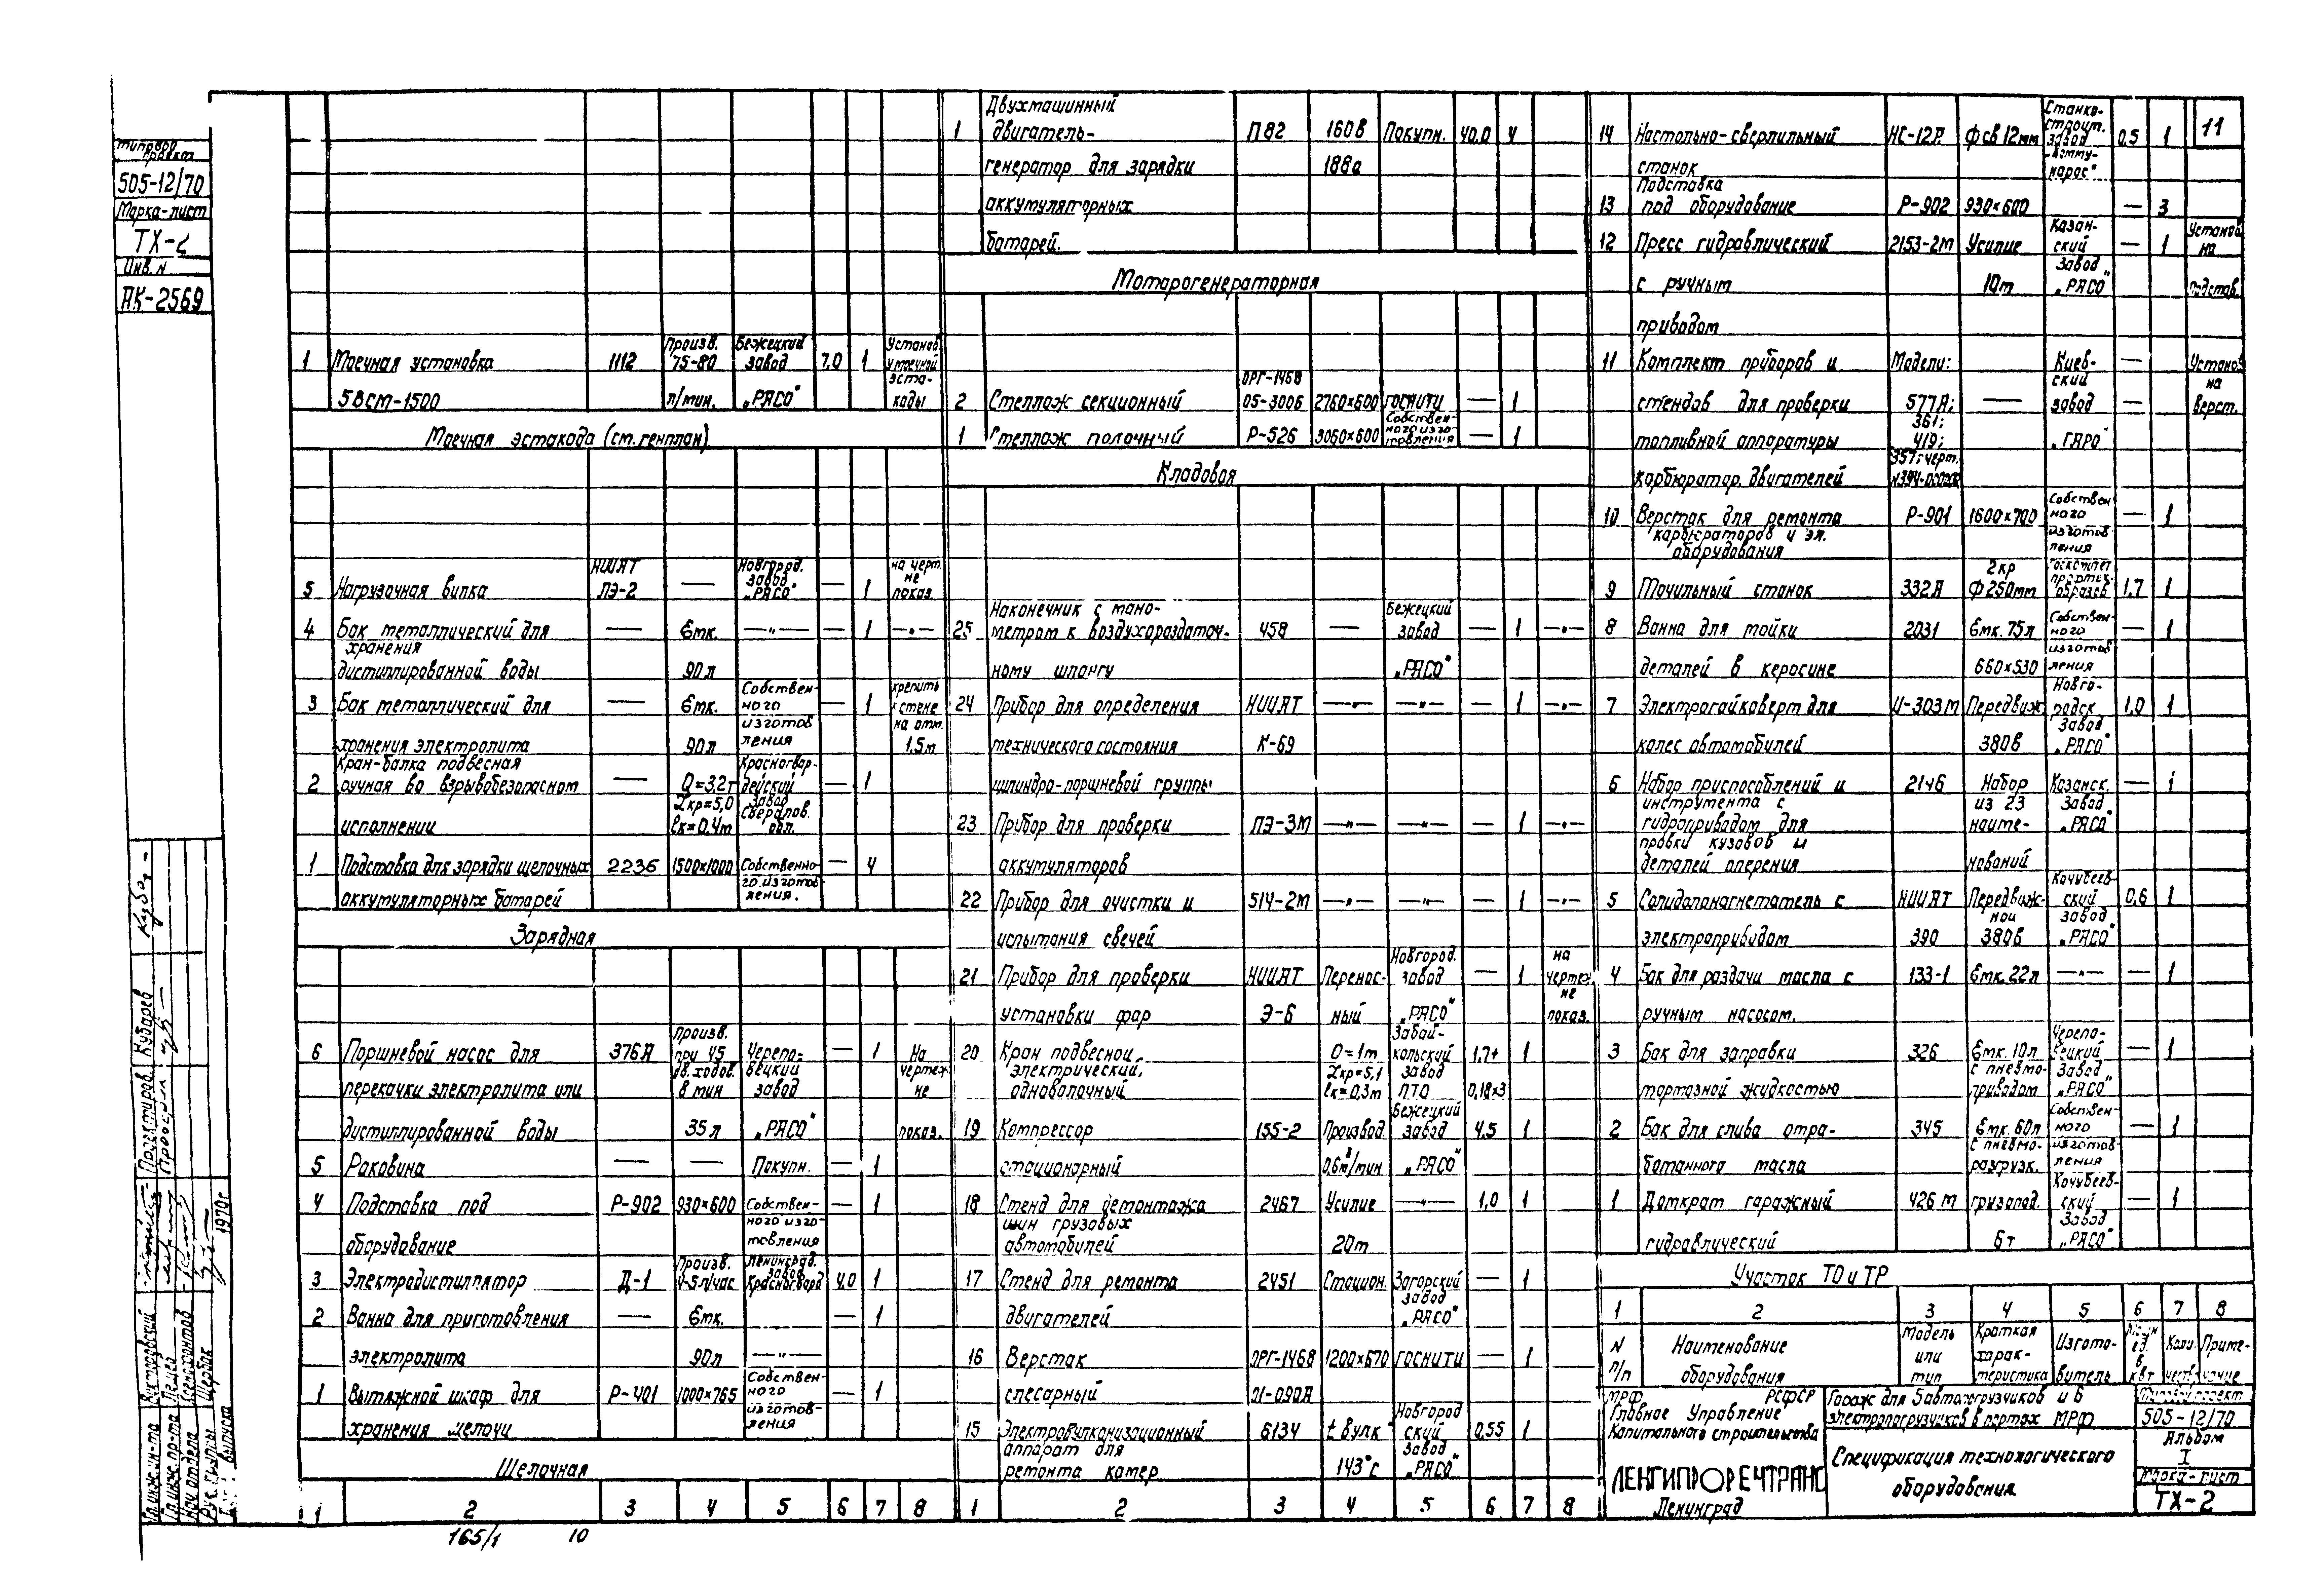 Типовой
проект
505-12/70
Марка-лист
ТХ-2
Инв. N
АК-2569
1 Моечная установка 1112 Произв. 75-80 Бежецкий завод 7,0 1 Установ. у моечной
58см-1500 л/мин. „РАСО" эстакады
Моечная эстакада (см. генплан)
5 Нагрузочная вилка НИИАТ ЛЭ-2 — Новгород. завод „РАСО" — 1 на черт. не показ.
4 Бак металлический для — Емк. —"— — 1 —"—
хранения
дистиллированной воды 90л
3 Бак металлический для — Емк. Собственного изготовления — 1 крепить к стене на отм. 1,5м
хранения электролита 90л
2 Кран-балка подвесная
ручная во взрывобезопасном — Q=3,2т Красногвардейский завод Свердлов. обл. — 1
исполнении Lкр=5,0 lк=0,4м
1 Подставка для зарядки щелочных 2236 1500×1000 Собственного изготовления. — 4
аккумуляторных батарей
Зарядная
6 Поршневой насос для 376А Произв. при 45 дв. ходов. в мин Череповецкий завод — 1 На чертеж. не
перекачки электролита или
дистиллированной воды 35л „РАСО" показ.
5 Раковина — — Покупн. — 1
4 Подставка под Р-902 930×600 Собственного изготовления — 1
оборудование
3 Электродистиллятор Д-1 Произв. 4-5л/час Ленинград. завод Красногвард 4,0 1
2 Ванна для приготовления — Емк. — 1
электролита 90л —"—
1 Вытяжной шкаф для Р-401 1000×765 Собственного изготовления — 1
хранения щелочи
Щелочная
1 2 3 4 5 6 7 8
165/1 10
1 Двухмашинный
двигатель- П82 160в Покупн. 40,0 4
генератор для зарядки 188а
аккумуляторных
батарей.
Моторогенераторная
2 Стеллаж секционный ОРГ-1468 05-3006 2760×600 ГОСНИТИ — 1
1 Стеллаж полочный Р-526 3060×600 Собственного изготовления — 1
Кладовая
25 Наконечник с мано-
метром к воздухораздаточ- 458 — Бежецкий завод — 1 —"—
ному шлангу „РАСО"
24 Прибор для определения НИИАТ —"— —"— — 1 —"—
технического состояния К-69
цилиндро-поршневой группы
23 Прибор для проверки ЛЭ-3М —"— —"— — 1 —"—
аккумуляторов
22 Прибор для очистки и 514-2М —"— —"— — 1 —"—
испытания свечей
21 Прибор для проверки НИИАТ Перенос- Новгород. завод — 1 на чертеж. не
установки фар Э-6 ный „РАСО" показ.
20 Кран подвесной Q=1т Забайкальский завод ПТО 1,7+ 1
электрический, Lкр=5,1
однобалочный lк=0,3м 0,18×3
19 Компрессор 155-2 Производ. Бежецкий завод 4,5 1
стационарный 0,6м³/мин „РАСО"
18 Стенд для демонтажа 2467 Усилие —"— 1,0 1
шин грузовых
автомобилей 20т
17 Стенд для ремонта 2451 Стацион. Загорский завод — 1
двигателей „РАСО"
16 Верстак ОРГ-1468 1200×670 ГОСНИТИ — 1
слесарный 01-090А
15 Электровулканизационный 6134 t вулк Новгородский завод 0,55 1
аппарат для
ремонта камер 143°с „РАСО"
1 2 3 4 5 6 7 8
14 Настольно-сверлильный НС-12А Фсв 12мм Станкостроит. завод „Коммунарас" 0,5 1
станок
11
13 Подставка
под оборудование Р-902 930×600 — 3
12 Пресс гидравлический 2153-2М Усилие Казанский — 1 Установ на
с ручным 10т завод „РАСО" подстав.
приводом
11 Комплект приборов и Модели: Киевский — Установ на
стендов для проверки 577А; — завод — верст.
топливной аппаратуры 361; 419; „ГАРО"
карбюратор. двигателей 357; черт.
10 Верстак для ремонта Р-901 1600×700 Собственного изготовления — 1
карбюраторов и эл.
оборудования
9 Точильный станок 332А 2кр Ф250мм 1,7 1
8 Ванна для мойки 2031 Емк. 75л Собственного изготовления — 1
деталей в керосине 660×530
7 Электрогайковерт для И-303М Передвиж. Новгородск. 1,0 1
колес автомобилей 380в завод „РАСО"
6 Набор приспособлений и 2146 Набор Казанск. — 1
инструмента с из 23 завод
гидроприводом для наиме- „РАСО"
правки кузовов и
деталей оперения нований
5 Солидолонагнетатель с НИИАТ Передвиж- Кочубеевский 0,6 1
ной завод
электроприводом 390 380в „РАСО"
4 Бак для раздачи масла с 133-1 Емк. 22л —"— — 1
ручным насосом.
3 Бак для заправки 326 Емк. 10л Череповецкий — 1
тормозной жидкостью с пневмоприводом завод „РАСО"
2 Бак для слива отра- 345 Емк. 60л Собственного изготовления — 1
ботанного масла с пневморазгрузк.
1 Домкрат гаражный 426М грузопод. Кочубеевский — 1
гидравлический 6т завод „РАСО"
Участок ТО и ТР
1 2 3 4 5 6 7 8
N п/п Наименование оборудования Модель или тип Краткая характеристика Изготовитель ед. в квт Приме-
чание
МРФ РСФСР
Главное Управление
Капитального строительства
ЛЕНГИПРОРЕЧТРАНС
Ленинград
Гараж для 5 автопогрузчиков и 6
электропогрузчиков в портах МРФ
Спецификация технологического
оборудования
Типовой проект
505-12/70
Альбом
I
Марка-лист
ТХ-2
Проектиров. Кубарев
Гл. инж. ин-та Виктаровский
Гл. инж. пр-та
Нач. отдела
Рук. группы Щербак
выпуска 1970г